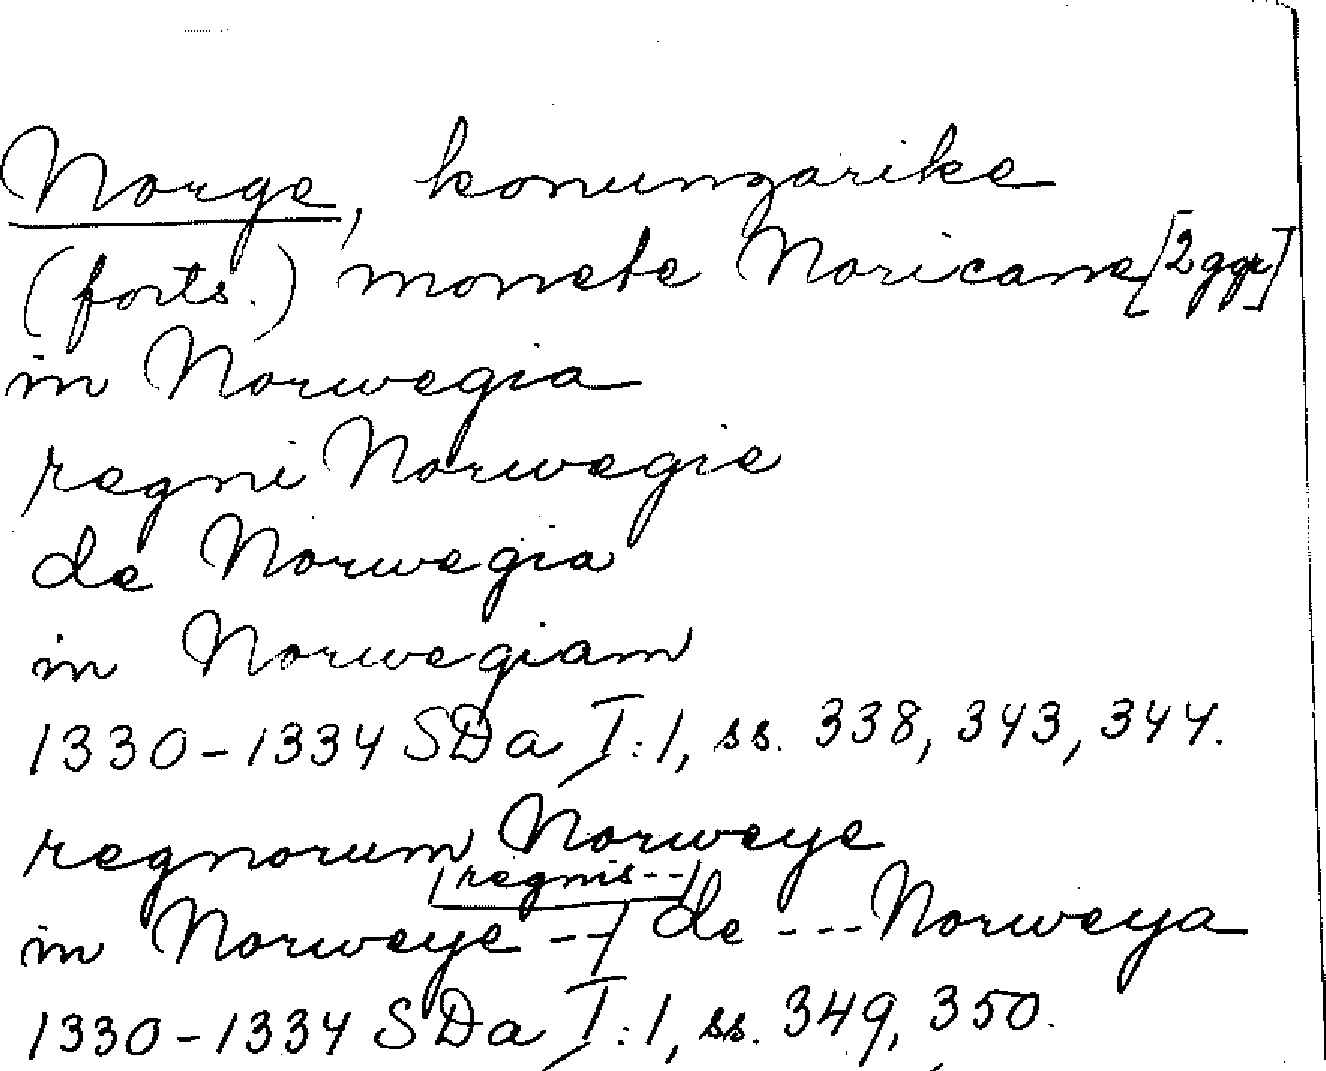 Norge, konungarike
(forts.) monete Noricane [2 ggr]
in Norwegia
regni Norwegie
de Norwegia
in Norwegiam
1330-1334 SDa I:1, ss. 338, 343, 344.
regnorum Norweye
regnis--
in Norweye --/ de --- Norweya
1330-1334 SDa I:1, ss. 349, 350.